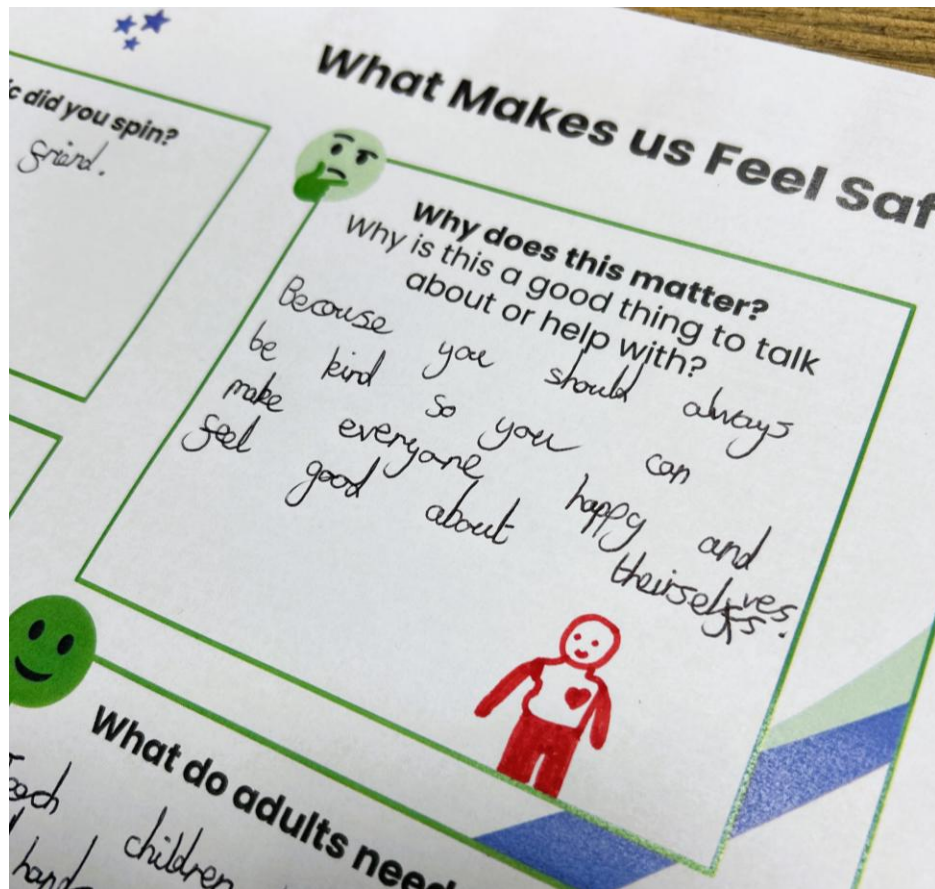 What Makes us Feel Saf
c did you spin?
friend.
Why does this matter?
Why is this a good thing to talk
about or help with?
Because you should always
be kind so you can
make everyone happy and
feel good about theirselves.
What do adults need
Teach children
hand